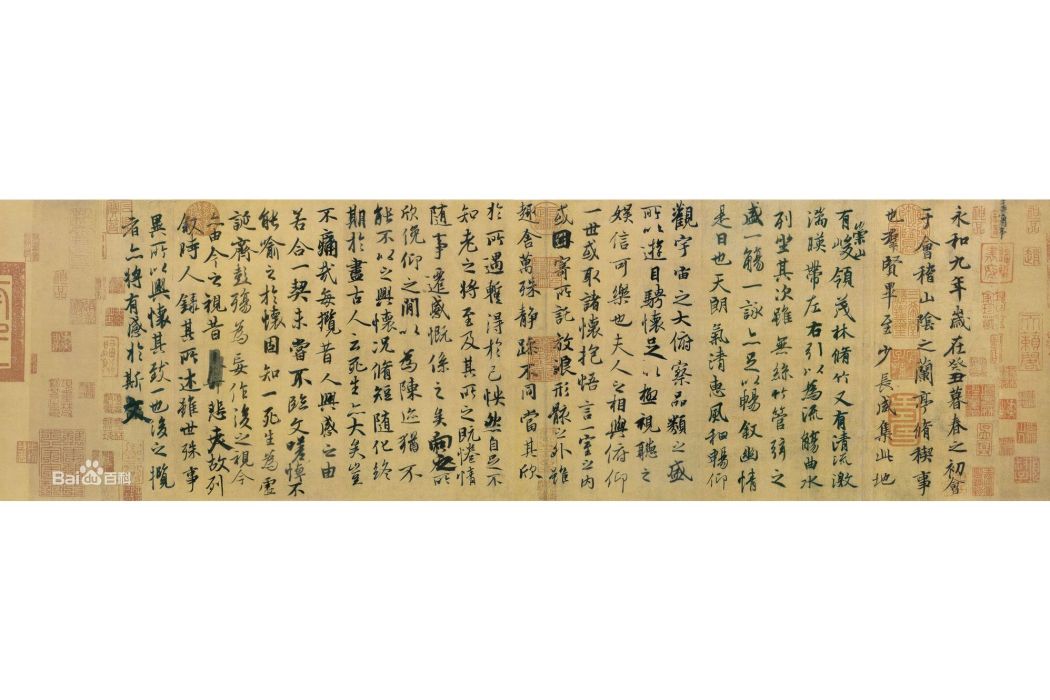 永和九年歲在癸丑暮春之初會
于會稽山陰之蘭亭脩稧事
也羣賢畢至少長咸集此地
有崇山峻領茂林脩竹又有清流激
湍暎帶左右引以為流觴曲水
列坐其次雖無絲竹管弦之
盛一觴一詠亦足以暢叙幽情
是日也天朗氣清惠風和暢仰
觀宇宙之大俯察品類之盛
所以遊目騁懷足以極視聽之
娛信可樂也夫人之相與俯仰
一世或取諸懷抱悟言一室之內
或因寄所託放浪形骸之外雖
趣舍萬殊靜躁不同當其欣
於所遇蹔得於己怏然自足不
知老之將至及其所之既惓情
隨事遷感慨係之矣向之所
欣俛仰之閒以為陳迹猶不
能不以之興懷況脩短隨化終
期於盡古人云死生亦大矣豈
不痛哉每攬昔人興感之由
若合一契未嘗不臨文嗟悼不
能喻之於懷固知一死生為虛
誕齊彭殤為妄作後之視今
亦由今之視昔悲夫故列
叙時人錄其所述雖世殊事
異所以興懷其致一也後之攬
者亦將有感於斯文
Bai百科